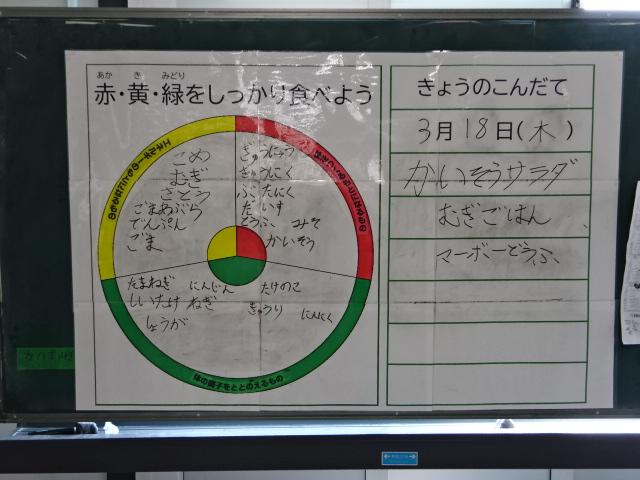 あか き みどり
赤・黄・緑をしっかり食べよう
エネルギーのもとになるもの
こめ
むぎ
さとう
ごまあぶら
でんぷん
ごま
ぎゅうにゅう
ぎゅうにく
ぶたにく
だいず
とうふ みそ
かいそう
たまねぎ にんじん たけのこ
しいたけ ねぎ きゅうり にんにく
しょうが
体の調子をととのえるもの
きょうのこんだて
3月18日(木)
かいそうサラダ
むぎごはん
マーボーどうふ